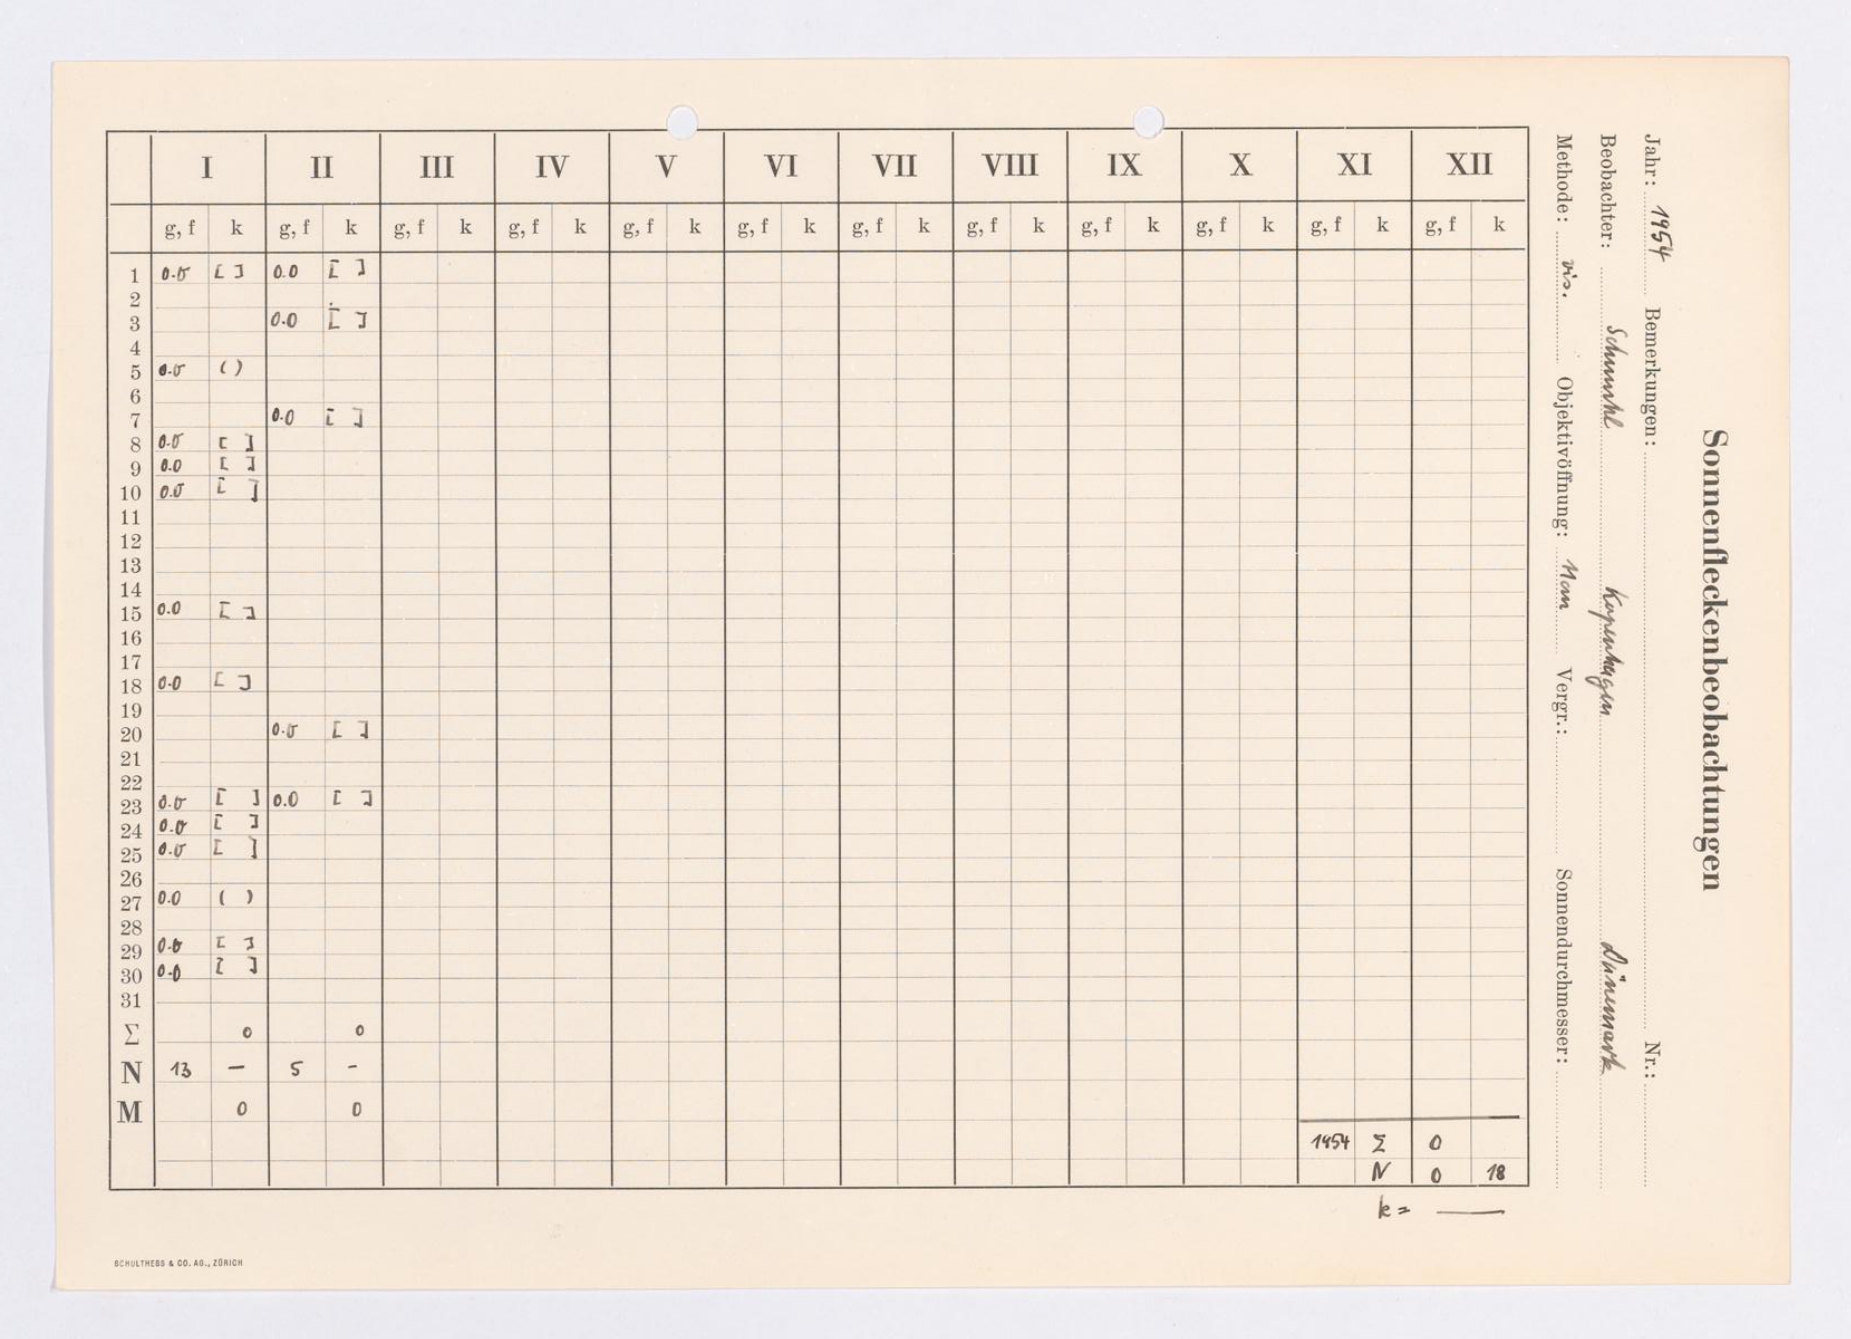 Sonnenfleckenbeobachtungen
Jahr: 1954 Bemerkungen: Nr.:
Beobachter: Kopenhagen Dänemark
Methode: vis. Objektivöffnung: Vergr.: Sonnendurchmesser:
I II III IV V VI VII VIII IX X XI XII
g, f k g, f k g, f k g, f k g, f k g, f k g, f k g, f k g, f k g, f k g, f k g, f k
1 0.0 [ ] 0.0 [ ]
2
3 0.0 [ ]
4
5 0.0 ( )
6
7 0.0 [ ]
8 0.0 [ ]
9 0.0 [ ]
10 0.0 [ ]
11
12
13
14
15 0.0 [ ]
16
17
18 0.0 [ ]
19
20 0.0 [ ]
21
22
23 0.0 [ ] 0.0 [ ]
24 0.0 [ ]
25 0.0 [ ]
26
27 0.0 ( )
28
29 0.0 [ ]
30 0.0 [ ]
31
Σ 0 0
N 13 – 5 –
M 0 0
1954 Σ 0
N 0 18
k = —
SCHULTHESS & CO. AG., ZÜRICH